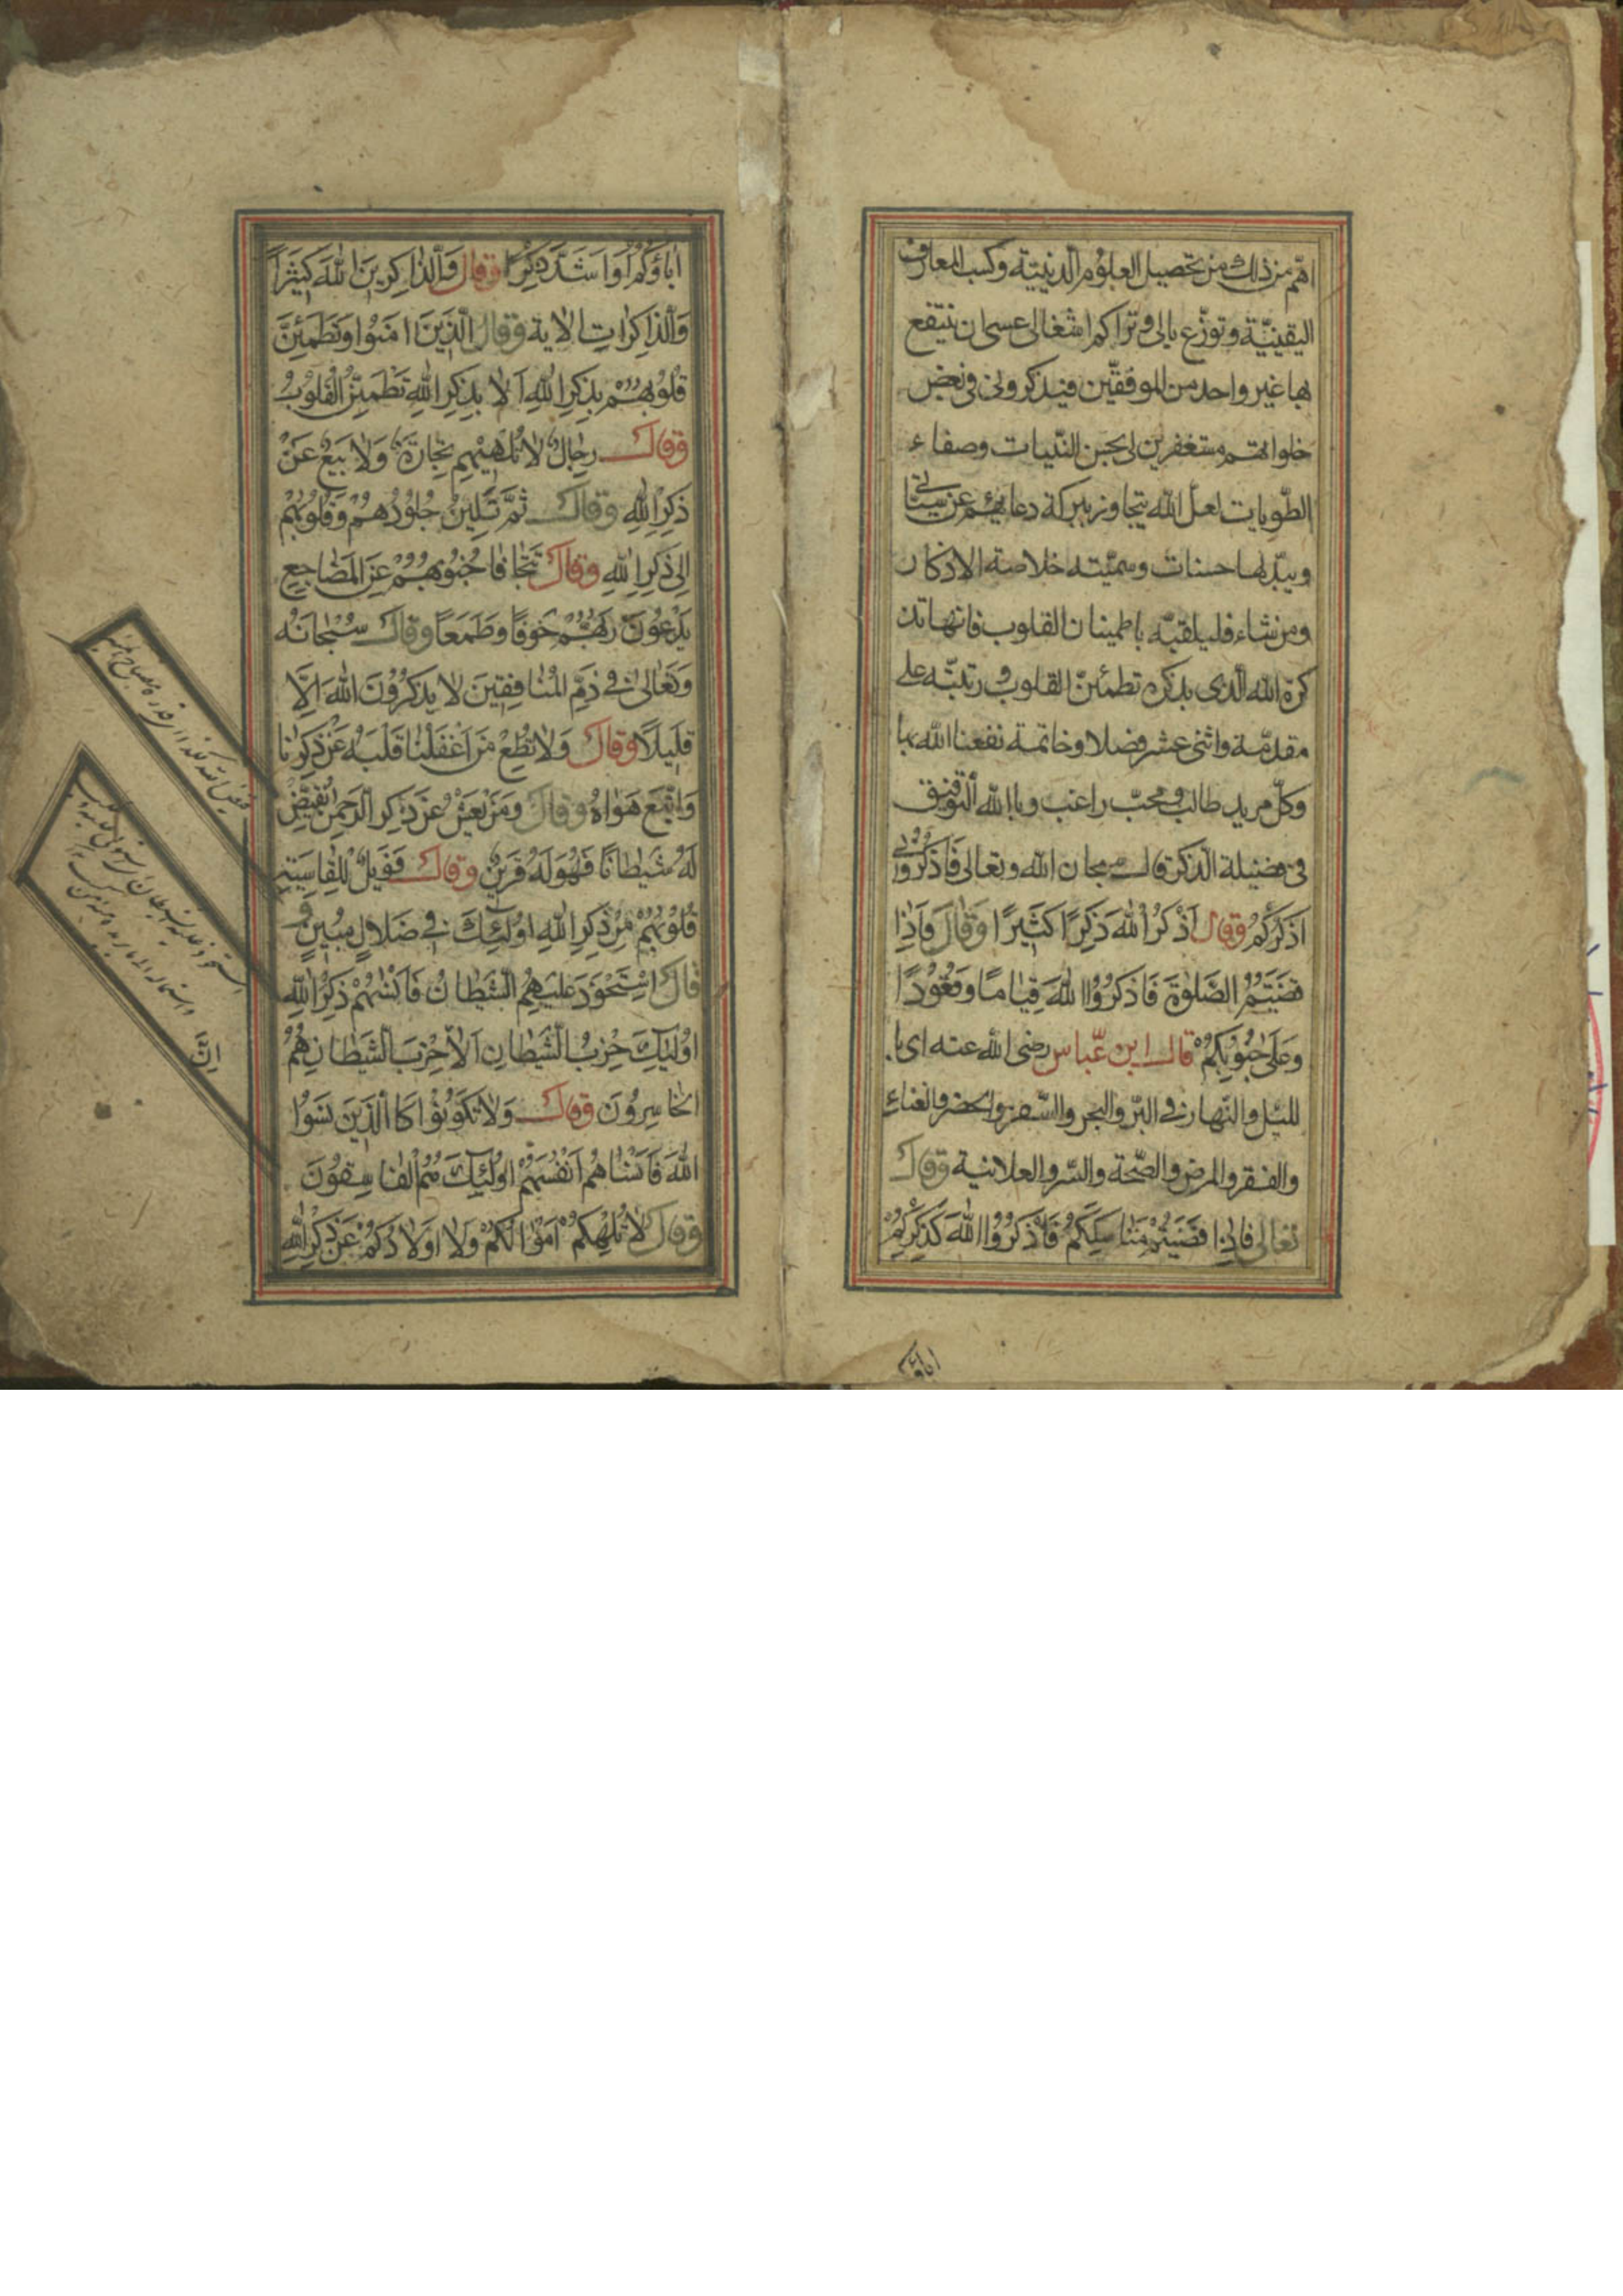 اهّم من ذلك من تحصيل العلوم الدينيّة وكسب المعارف
اليقينيّة وتوزّع بالى وتراكم اشغالى عسى ان ينتفع
بها غير واحد من الموفقّين فيذكرونى فى بعض
خلواتهم مستغفرين لى بحسن النّيات وصفاء
الطّويات لعلّ الله يتجاوز ببركة دعائهم عن سيئاتى
ويبدّلها حسنات وسمّيته خلاصة الاذكار
ومن شاء فليلقبّه باطمينان القلوب فانها تذ
كرة الله الّذى بذكره تطمئنّ القلوب ورتبّه على
مقدّمة واثنى عشر فصلا وخاتمة نفعنا الله بها
وكلّ مريد طالب ومحبّ راغب وبالله التوفيق
فى فضيلة الذكر قال سبحان الله وتعالى فَاذكُرُونى
اَذكُركُم وقال اَذْكُرُ اللهَ ذَكِرًا كَثيرًا وَقَالَ فَاَذِا
قضَيَتُمُ الصَّلوٰةَ فَاذكرُوُا اللهَ قِيٰامًا وَقُعُودًا
وَعَلى جُنُوبِكمُ قال ابن عبّاس رضى الله عنه اى با
لليّل والنّهار فى البّر والبحر والسّفر والحضر والغناء
والفقر والمرض والصّحة والسّر والعلانية وقال
تعالى فاذِا قضَيَتُم مَنٰاسِكَكُم فَاذكرُوُا اللهَ كَذِكرِكُم
اٰباؤكم
اٰباؤَكُم اَو اَشَدَّ ذِكرًا وقال وَالذّاكِرينَ اللهَ كثيرًا
وَالذاكِرٰاتِ الاية وقال الّذَينَ اٰمَنوُا وَتَطمَئِنَّ
قُلوُبهُم بِذِكرِ اللهِ اَلا بِذِكرِ اللهِ تَطمَئِنُّ القُلوُبُ
وقال رِجٰالٌ لا تُلهيٖهِم تِجٰارَةٌ وَلا بَيعٌ عَن
ذِكرِ اللهِ وقال ثُمَّ تَلينُ جُلوُدُهُم وَقُلوُبُهُم
اِلى ذِكرِ اللهِ وقال تَتَجٰافا جُنوُبهُم عَنِ المَضٰاجِعِ
يَدعُونَ رَبَّهُم خَوفًا وَطَمَعًا وقال سُبحٰانَهُ
وَتَعٰالىٰ فى ذَمِّ المُنٰافِقينَ لا يَذكرُونَ اللهَ اِلّا
قَليلًا وقال وَلا تُطِع مَن اَغفَلنٰا قَلبَهُ عَن ذِكرِنٰا
وَاتَّبَعَ هَوٰاهُ وقال وَمَن يَعشُ عَن ذِكرِ الرَّحمٰنِ نُقَيِّض
لَهُ شَيطانًا فَهُوَ لَهُ قَرينٌ وقال فَوَيلٌ لِلقٰاسِيَةِ
قُلوُبُهُم مِن ذِكرِ اللهِ اوُلئِكَ فى ضَلالٍ مُبينٍ و
قال اِستَحوَذَ عَليَهِمُ الشَّيطانُ فَاَنسٰهُم ذِكرَ اللهِ
اوُلئِكَ حِزبُ الشَّيطانِ اَلا حِزبَ الشَّيطانِ هُمُ
اِنَّ
الخٰاسِروُنَ وقال وَلا تَكوُنوُا كَا الّذَينَ نَسَوُا
اللهَ فَاَنسٰاهُم اَنفُسَهُم اوُلئِكَ هُمُ الفٰاسِقوُنَ
وقال لا تُلهِكُم اَموٰالُكُم وَلا اَولادُكُم عَن ذِكرِ اللهِ